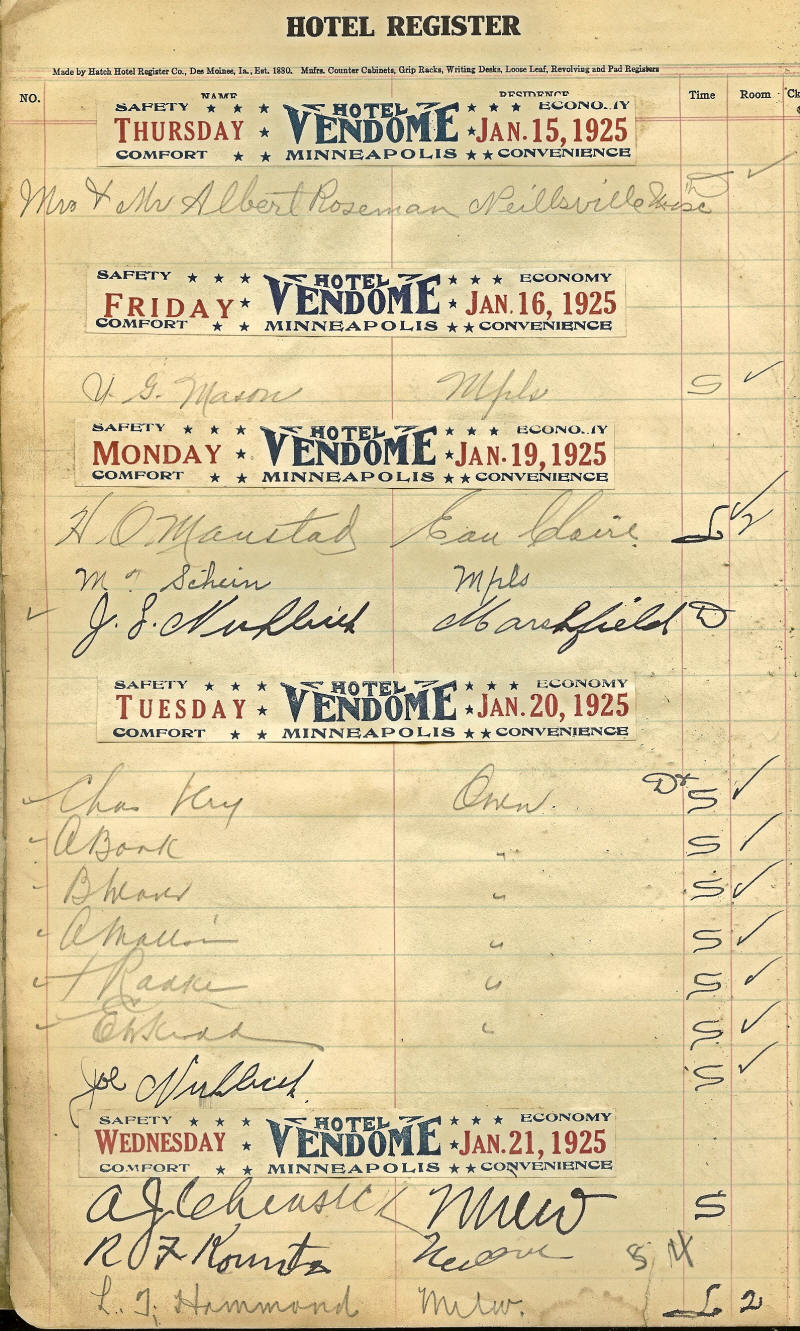 HOTEL REGISTER
Made by Hatch Hotel Register Co., Des Moines, Ia., Est. 1880. Mnfrs. Counter Cabinets, Grip Racks, Writing Desks, Loose Leaf, Revolving and Pad Registers
NO. NAME RESIDENCE Time Room Ck
SAFETY ★ ★ ★ HOTEL ★ ★ ★ ECONOMY
THURSDAY ★ VENDOME ★ JAN. 15, 1925
COMFORT ★ ★ MINNEAPOLIS ★ ★ CONVENIENCE
Mrs & Mr Albert Roseman Neillsville Wisc D ✓
SAFETY ★ ★ ★ HOTEL ★ ★ ★ ECONOMY
FRIDAY ★ VENDOME ★ JAN. 16, 1925
COMFORT ★ ★ MINNEAPOLIS ★ ★ CONVENIENCE
G. Mason Mpls S ✓
SAFETY ★ ★ ★ HOTEL ★ ★ ★ ECONOMY
MONDAY ★ VENDOME ★ JAN. 19, 1925
COMFORT ★ ★ MINNEAPOLIS ★ ★ CONVENIENCE
H O Manstad Eau Claire L ✓ 2
Schein Mpls
✓ J. Marshfield D
SAFETY ★ ★ ★ HOTEL ★ ★ ★ ECONOMY
TUESDAY ★ VENDOME ★ JAN. 20, 1925
COMFORT ★ ★ MINNEAPOLIS ★ ★ CONVENIENCE
✓ Chas Owen. S ✓
✓ A Book " S ✓
✓ B " S ✓
✓ A " S ✓
✓ Radke " S ✓
✓ " S ✓
Joe S ✓
SAFETY ★ ★ ★ HOTEL ★ ★ ★ ECONOMY
WEDNESDAY ★ VENDOME ★ JAN. 21, 1925
COMFORT ★ ★ MINNEAPOLIS ★ ★ CONVENIENCE
A J Milw S
R F Kountz
L. T. Hammond Milw. L 2